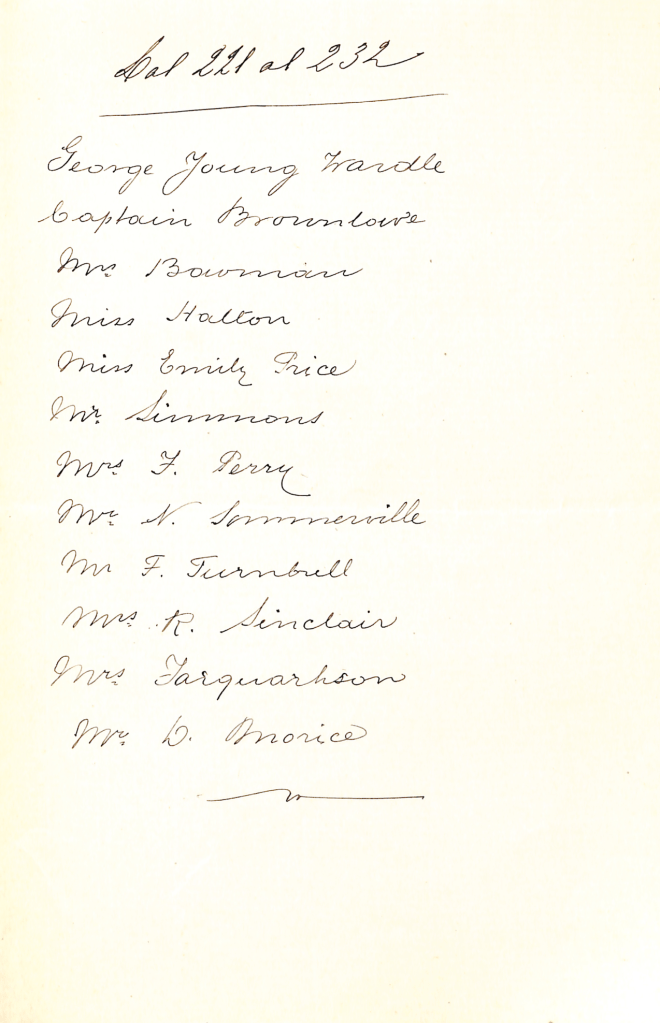 Dal 221 al 232
George Young Wardle
Captain Brownlowe
Mrs Bowman
Miss Halton
Miss Emily Price
Mr. Simmons
Mrs F. Perry
Mr. N. Sommerville
Mr F. Turnbull
Mrs R. Sinclair
Mrs Farquarhson
Mr. D. Morice